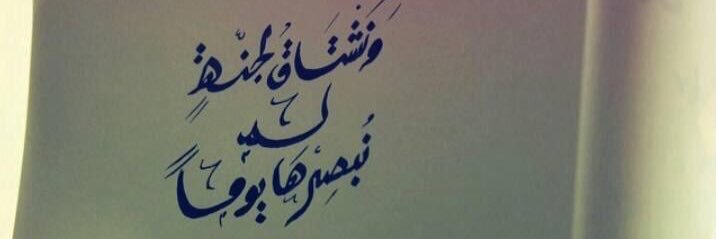 وَنَشتَاقُ لجنّةٍ
لم
نُبصِرْهَا يومًا